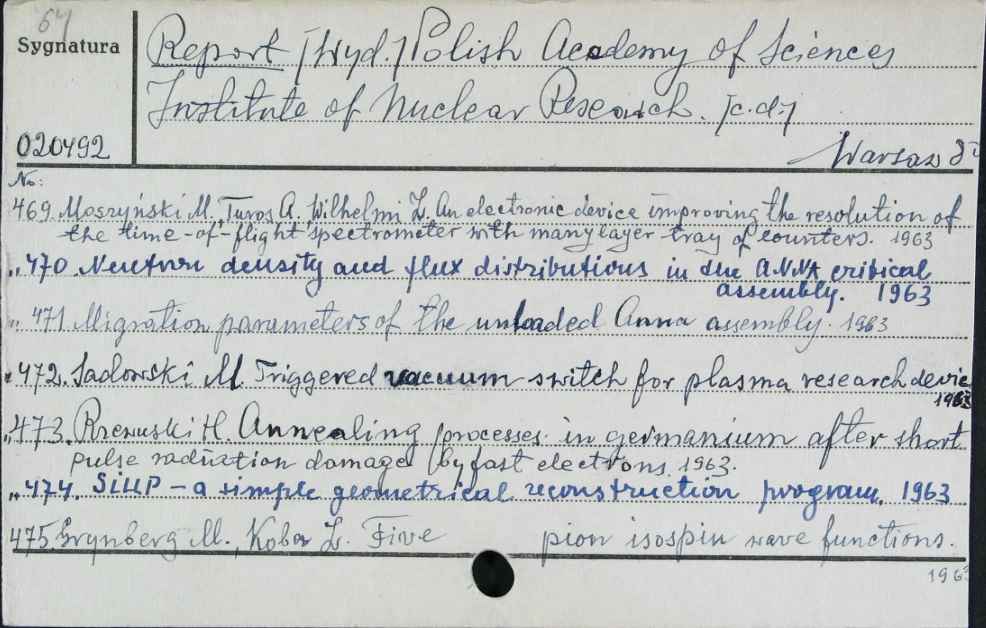 64
Sygnatura
Report [Wyd.] Polish Academy of Sciences
Institute of Nuclear Research. [c.d.]
020492
Warsaw
No:
469. Moszyński M., Turos A., Wilhelmi Z. An electronic device improving the resolution of
the time-of-flight spectrometer with many layer tray of counters. 1963
„ 470 Neutron density and flux distributions in the ANNA critical
assembly. 1963
„ 471 Migration parameters of the unloaded Anna assembly. 1963
„ 472. Sadowski M. Triggered vacuum switch for plasma research device
1963
„ 473. Rzewuski H. Annealing processes in germanium after short
pulse radiation damage by fast electrons. 1963.
„ 474. SIUP – a simple geometrical reconstruction program. 1963
475. Grynberg M., Koba Z. Five pion isospin wave functions.
1963